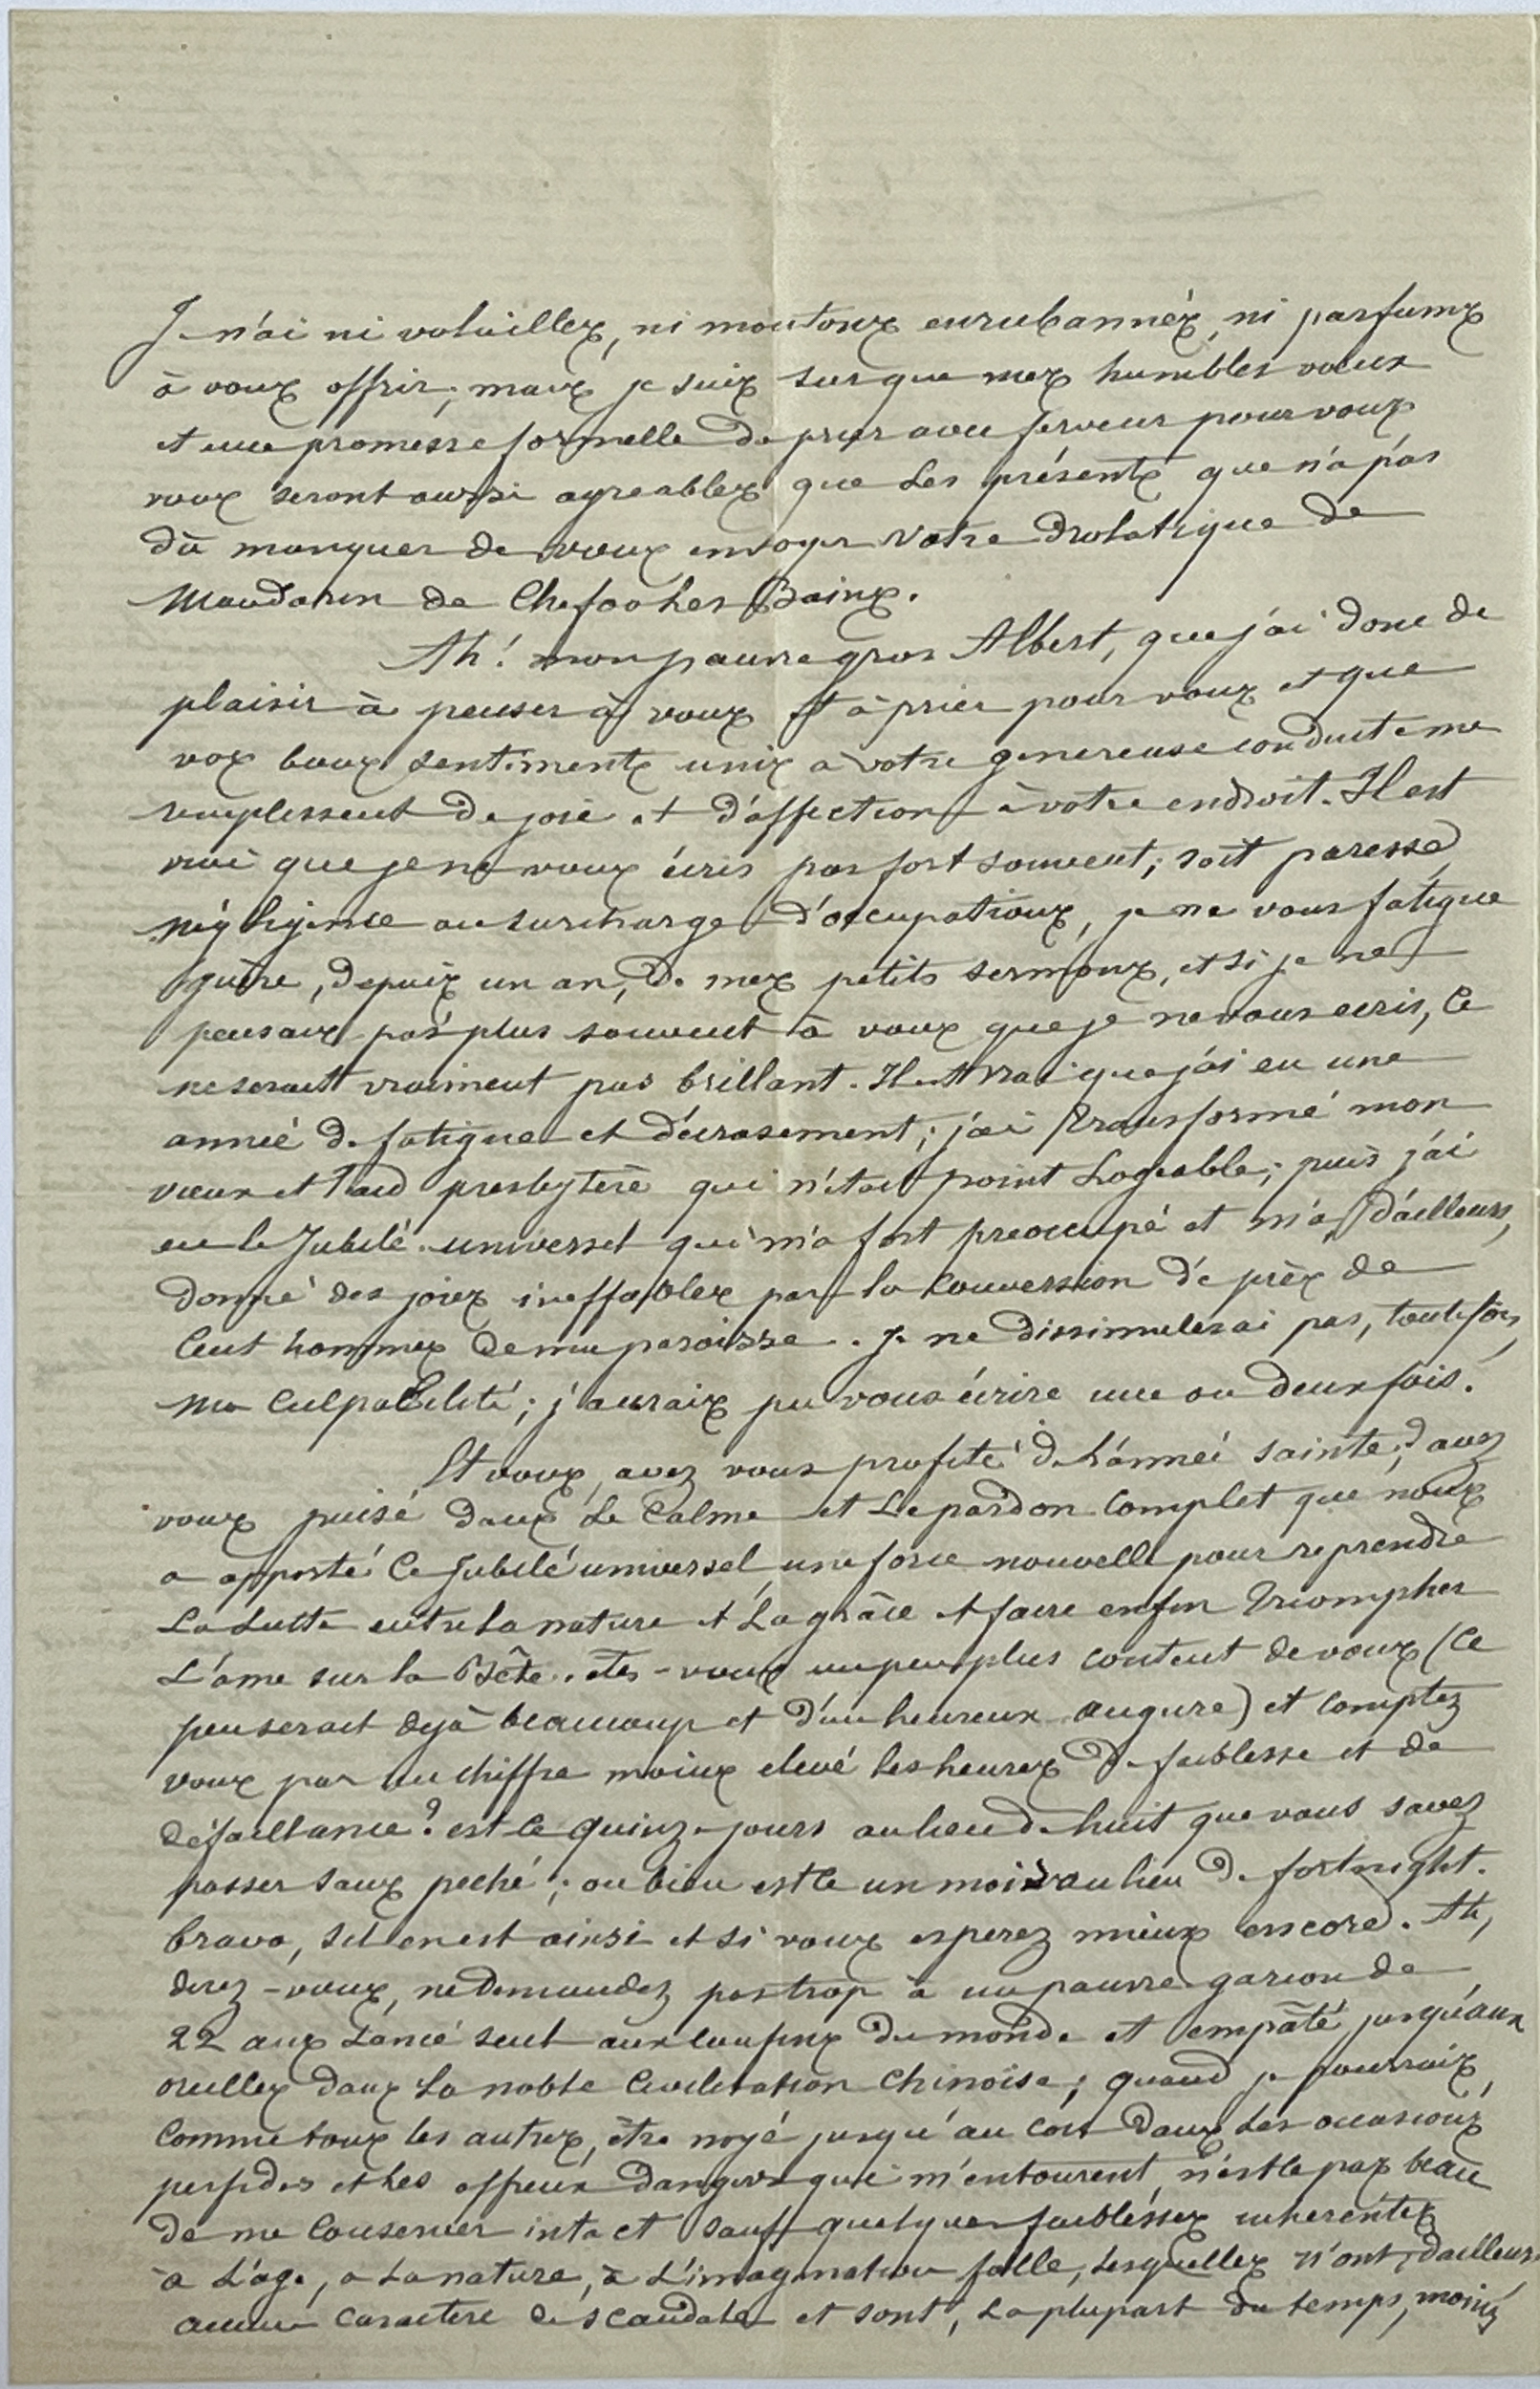 Je n'ai ni volailles, ni moutons enrubannés, ni parfums
à vous offrir; mais je suis sur que mes humbles vœux
et une promesse formelle de prier avec ferveur pour vous
vous seront aussi agreables que les présents que n'a pas
dû manquer de vous envoyer votre drolatique de
Mandarin de Chefoo les Bains.
Ah! mon pauvre gros Albert, que j'ai donc de
plaisir à penser à vous et à prier pour vous et que
vos bons sentiments unis à votre genereuse conduite me
remplissent de joie et d'affection à votre endroit. Il est
vrai que je ne vous écris pas fort souvent; soit paresse,
négligence ou surcharge d'occupations, je ne vous fatigue
guère, depuis un an, de mes petits sermons, et si je ne
pensais pas plus souvent à vous que je ne vous ecris, ce
ne serait vraiment pas brillant. Il est vrai que j'ai eu une
année de fatigue et d'écrasement; j'ai transformé mon
vieux et laid presbytère qui n'était point logeable; puis j'ai
eu le Jubilé universel qui m'a fort preoccupé et m'a, d'ailleurs,
donné des joies ineffables par la conversion de près de
cent hommes de ma paroisse. Je ne dissimulerai pas, toutefois,
ma culpabilité; j'aurais pu vous écrire une ou deux fois.
Et vous, avez vous profité de l'année sainte; avez
vous puisé dans le calme et le pardon complet que nous
a apporté ce Jubilé universel, une force nouvelle pour reprendre
la lutte entre la nature et la grâce et faire enfin triompher
l'ame sur la Bête. êtes-vous un peu plus content de vous (ce
peu serait dejà beaucoup et d'un heureux augure) et comptez
vous par un chiffre moins elevé les heures de faiblesse et de
défaillance? est ce quinze jours au lieu de huit que vous savez
passer sans peché; ou bien est ce un mois au lieu de fortnight.
bravo, s'il en est ainsi et si vous esperez mieux encore. Ah,
direz-vous, ne demandez pas trop à un pauvre garçon de
22 ans lancé seul aux confins du monde et empâté jusqu'aux
oreilles dans la noble civilisation chinoise; quand je pourrais,
comme tous les autres, être noyé jusqu'au cou dans les occasions
perfides et les affreux dangers qui m'entourent, n'est ce pas beau
de me conserver intact sauf quelques faiblesses inherentes
à l'age, a la nature, à l'imagination folle, lesquelles n'ont, d'ailleurs
aucun caractere de scandale et sont, la plupart du temps, moins